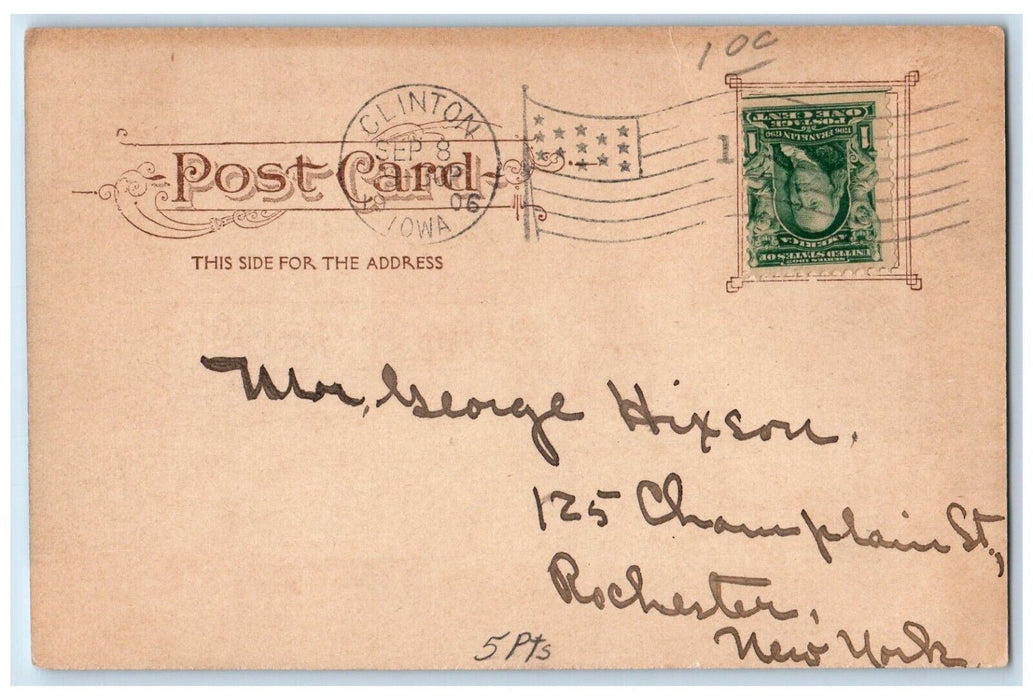 10¢
CLINTON
SEP 8
19 06
IOWA
1
Post Card
THIS SIDE FOR THE ADDRESS
SERIES 1902
UNITED STATES OF
AMERICA
1706 FRANKLIN 1790
POSTAGE
1 1
ONE CENT
Mr. George Hixson.
125 Champlain St.,
Rochester,
New York.
5 Pts